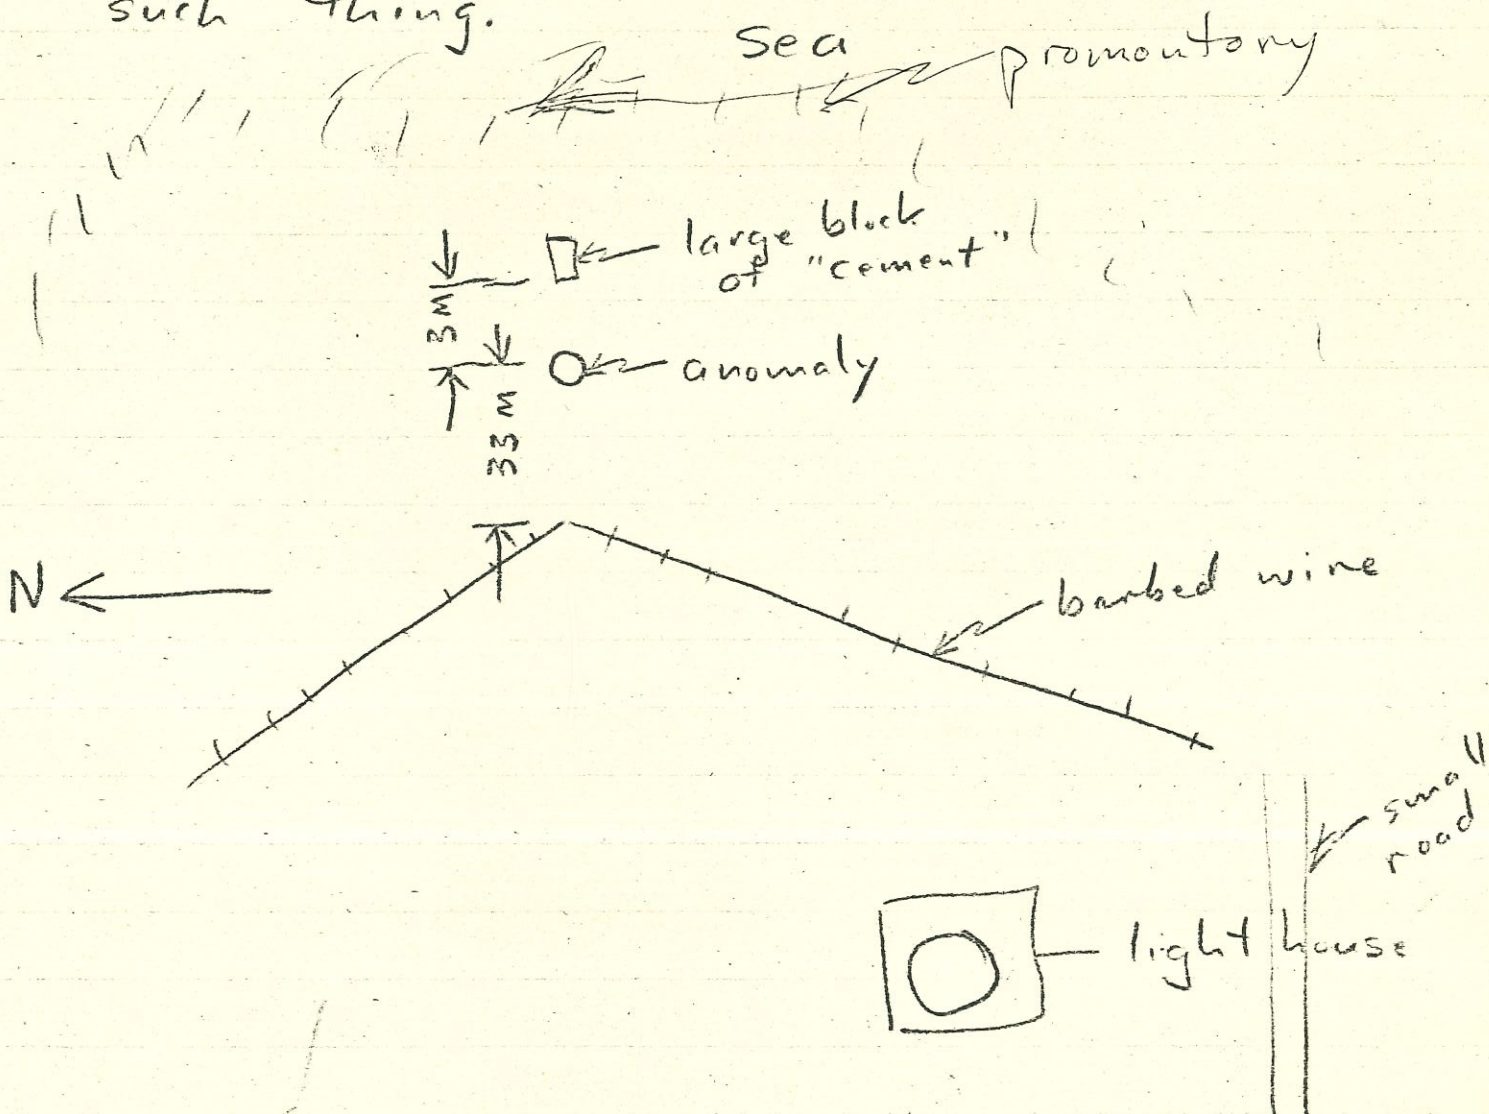 such thing.
sea
promontory
large block
of "cement"
3 M
anomaly
33 M
N
barbed wire
small
road
light house